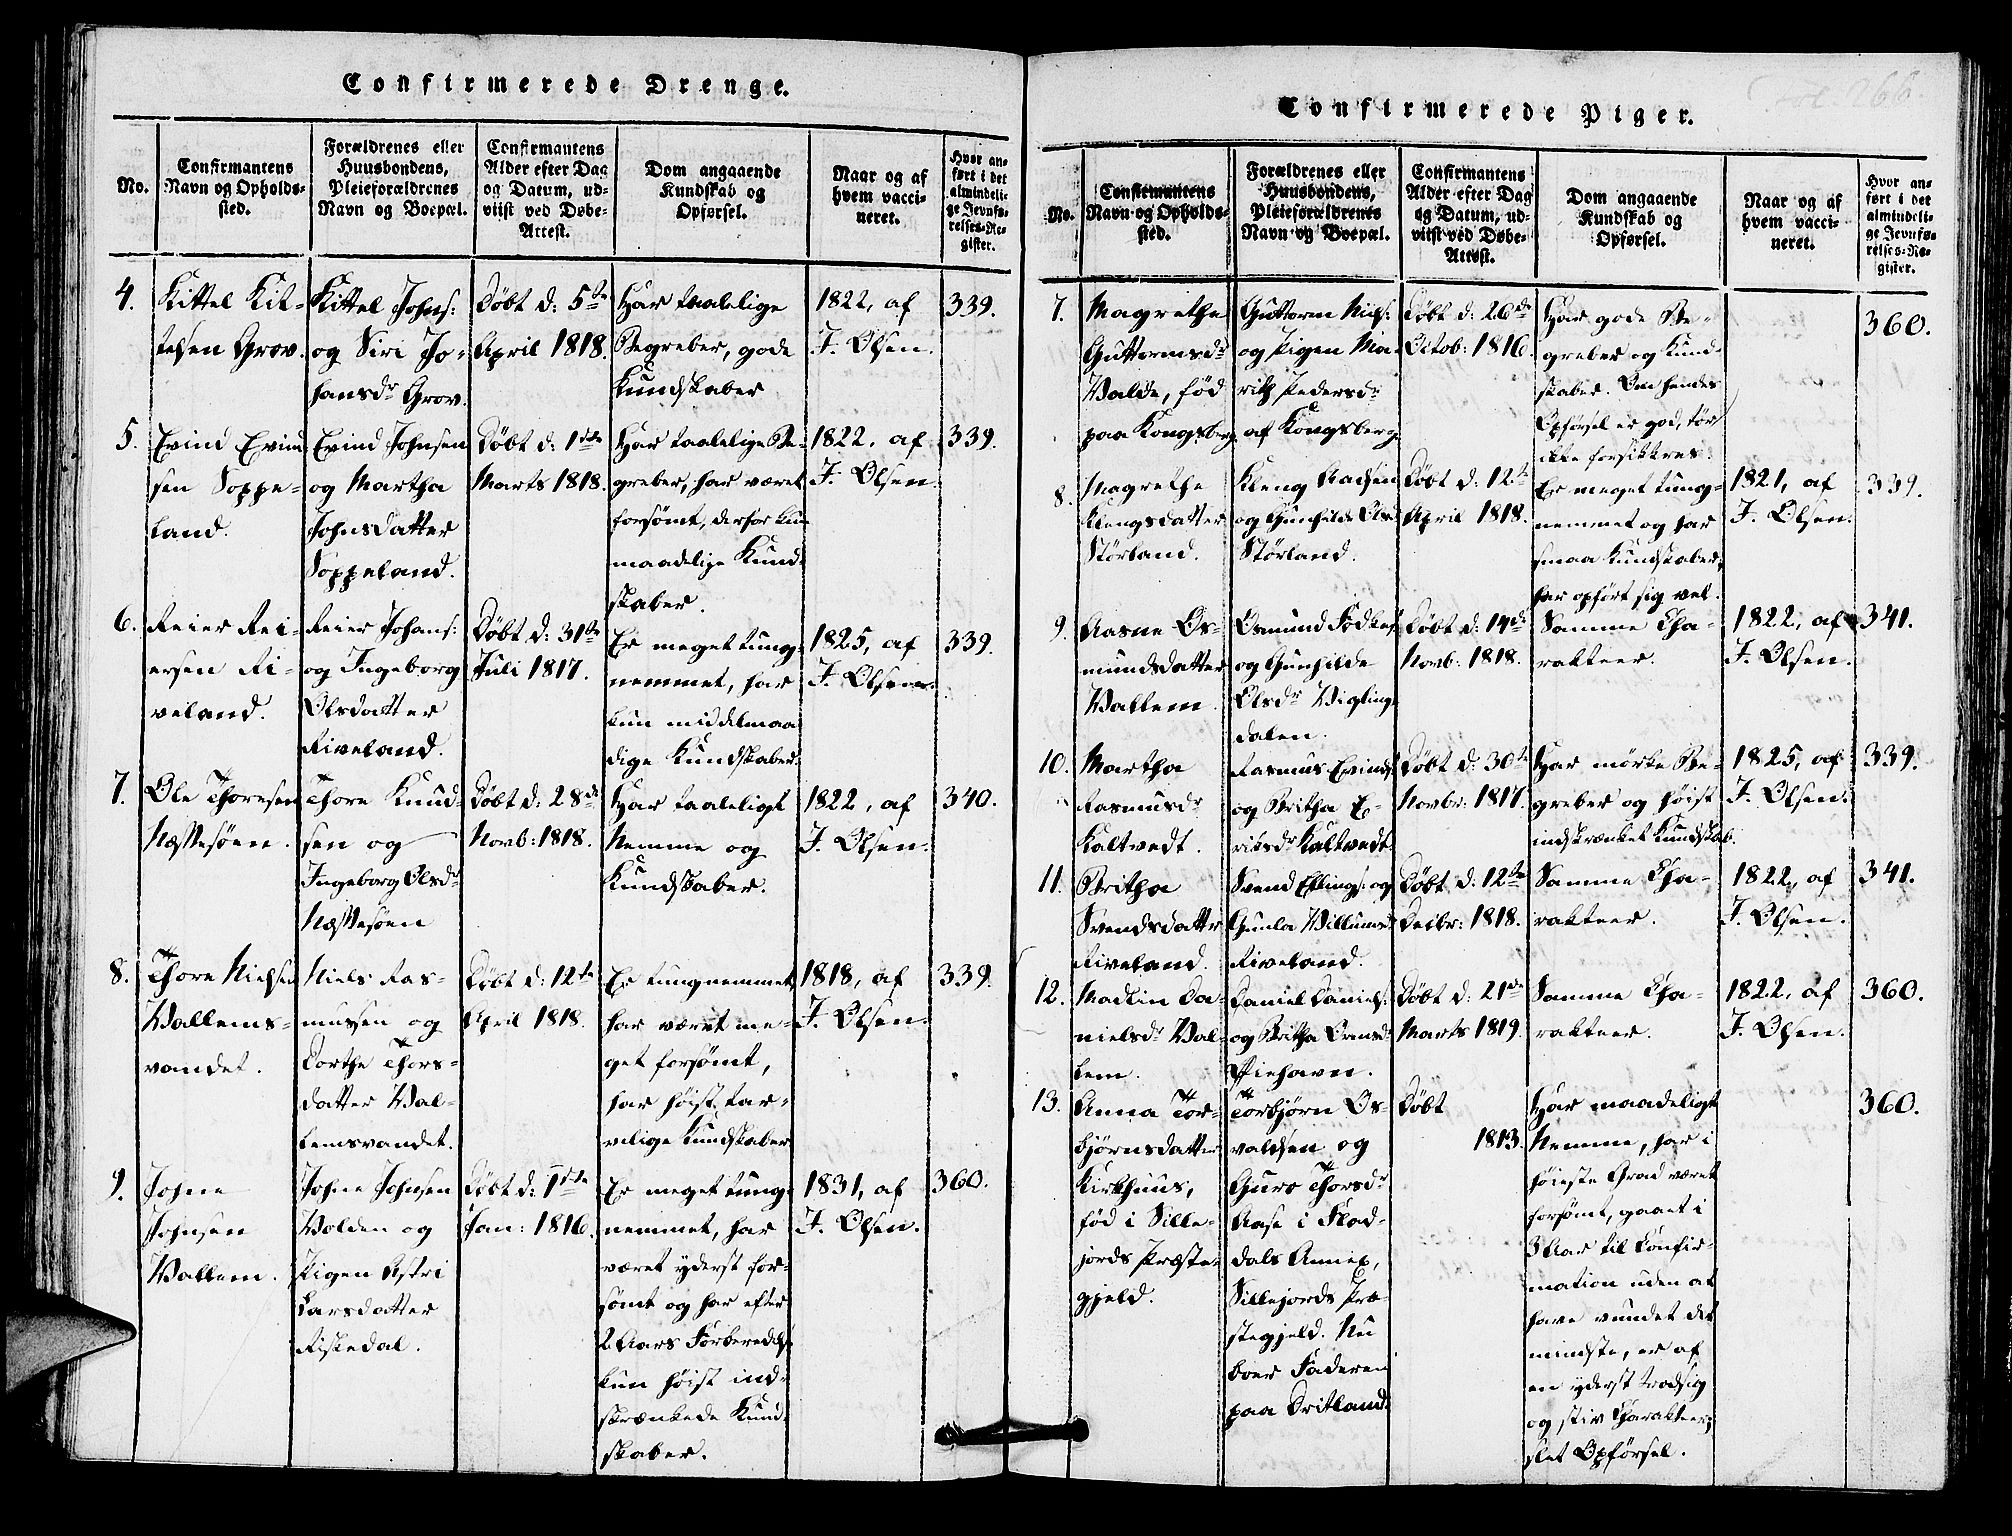 Confirmerede Drenge.
No.
Confirmantens
Navn og Opholds-
sted.
Forældrenes eller
Huusbondens,
Pleieforældrenes
Navn og Boepæl.
Confirmantens
Alder efter Dag
og Datum, ud-
viist ved Døbe-
Attest.
Dom angaaende
Kundskab og
Opførsel.
Naar og af
hvem vacci-
neret.
Hvor an-
ført i det
almindeli-
ge Jevnfø-
relses-Re-
gister.
4.
Kittel Kit-
telsen Grov.
Kittel Johns:
og Siri Jo-
hansdr Grov.
Døbt d: 5te
April 1818.
Har taalelige
Begreber, gode
Kundskaber
1822, af
J. Olsen.
339.
5.
Evind Evind
sen Soppe-
land.
Evind Johnsen
og Martha
Johnsdatter
Soppeland.
Døbt d: 1ste
Marts 1818.
Har taalelige Be-
greber, har været
forsömt, derfor kun
maadelige Kund-
skaber.
1822, af
J. Olsen.
339.
6.
Reier Rei-
ersen Ri-
veland.
Reier Johans:
og Ingeborg
Olsdatter
Riveland.
Døbt d: 31te
Juli 1817.
Er meget tung-
nemmet, har
kun middelmaa
dige Kundskaber.
1825, af
J. Olsen.
339.
7.
Ole Thoresen
Næssesöen.
Thore Knud-
sen og
Ingeborg Olsdr
Næssesöen
Døbt d: 28de
Novb: 1818.
Har taaleligt
Nemme og
Kundskaber.
1822, af
J. Olsen.
340.
8.
Thore Nielsen
Wallems-
vandet.
Niels Ras-
mussen og
Dorthe Thors-
datter Wal-
lemsvandet.
Døbt d: 12te
April 1818.
Er tungnemmet
har været me-
get forsömt,
har høist tar-
velige Kundskaber
1818, af
J. Olsen.
339.
9.
Johne
Johnsen
Wallem.
Johne Johnsen
Wolden og
Pigen Astri
Larsdatter
Riskedal.
Døbt d: 1ste
Jan: 1816.
Er meget tung-
nemmet, har
været yderst for-
sömt og har efter
2 Aars Forberedelse
kun høist ind-
skrænkede Kund-
skaber.
1831, af
J. Olsen.
360.
Confirmerede Piger.
266.
No.
Confirmantens
Navn og Opholds-
sted.
Forældrenes eller
Huusbondens,
Pleieforældrenes
Navn og Boepæl.
Confirmantens
Alder efter Dag
og Datum, ud-
viist ved Døbe-
Attest.
Dom angaaende
Kundskab og
Opførsel.
Naar og af
hvem vacci-
neret.
Hvor an-
ført i det
almindeli-
ge Jevnfø-
relses-Re-
gister.
7.
Magrethe
Guttormsdr
Walde, fød
paa Kongsberg
Guttorm Niels:
og Pigen Ma-
rith Pedersdr
af Kongsberg.
Døbt d: 26de
Octob: 1816.
Har gode Be-
greber og Kund-
skaber. Om hendes
Opførsel er god, tør
ikke forsikkres.
360.
8.
Magrethe
Klengsdatter
Störland.
Kleng
og Gunhilde Olsd:
Störland.
Døbt d: 12te
April 1818.
Er meget tung-
nemmet og har
smaa Kundskaber,
har opført sig vel.
1821, af
J. Olsen.
339.
9.
Aasne Os-
mundsdatter
Wallem.
Osmund
og Gunhilde
Olsdr Wigling-
dalen.
Døbt d: 14de
Novb: 1818.
Samme Cha-
rakteer.
1822, af
J. Olsen.
341.
10.
Martha
Rasmusdr
Kaltvedt.
Rasmus Evinds:
og Britha E-
riksdr Kaltvedt.
Døbt d: 30te
Novbr: 1817.
Har mørke Be-
greber og høist
indskrænket Kundskab.
1825, af
J. Olsen.
339.
11.
Britha
Svendsdatter
Riveland.
Svend Ellings: og
Gunla Willumsd:
Riveland.
Døbt d: 12te
Decbr: 1818.
Samme Cha-
rakteer.
1822, af
J. Olsen.
341.
12.
Madlin Da-
nielsdr Wal-
lem.
Daniel Daniels:
og Britha Ormsdr
Piehavn.
Døbt d: 21de
Marts 1819.
Samme Cha-
rakteer.
1822, af
J. Olsen.
360.
13.
Anna Tor-
björnsdatter
Kirkhuus,
fød i Sille-
jords Præste-
gjeld.
Torbjørn Os-
valdsen og
Guro Thorsdr
Aase i Flad-
dals Annex,
Sillejords Præ-
stegjeld. Nu
boer Faderen
paa Dritland.
Døbt
1813.
Har maadeligt
Nemme, har i
høieste Grad været
forsömt, gaaet i
3 Aar til Confir-
mation uden at
have vundet det
mindste, er af
en yderst trodsig
og stiv Charakteer,
slet Opførsel.
360.